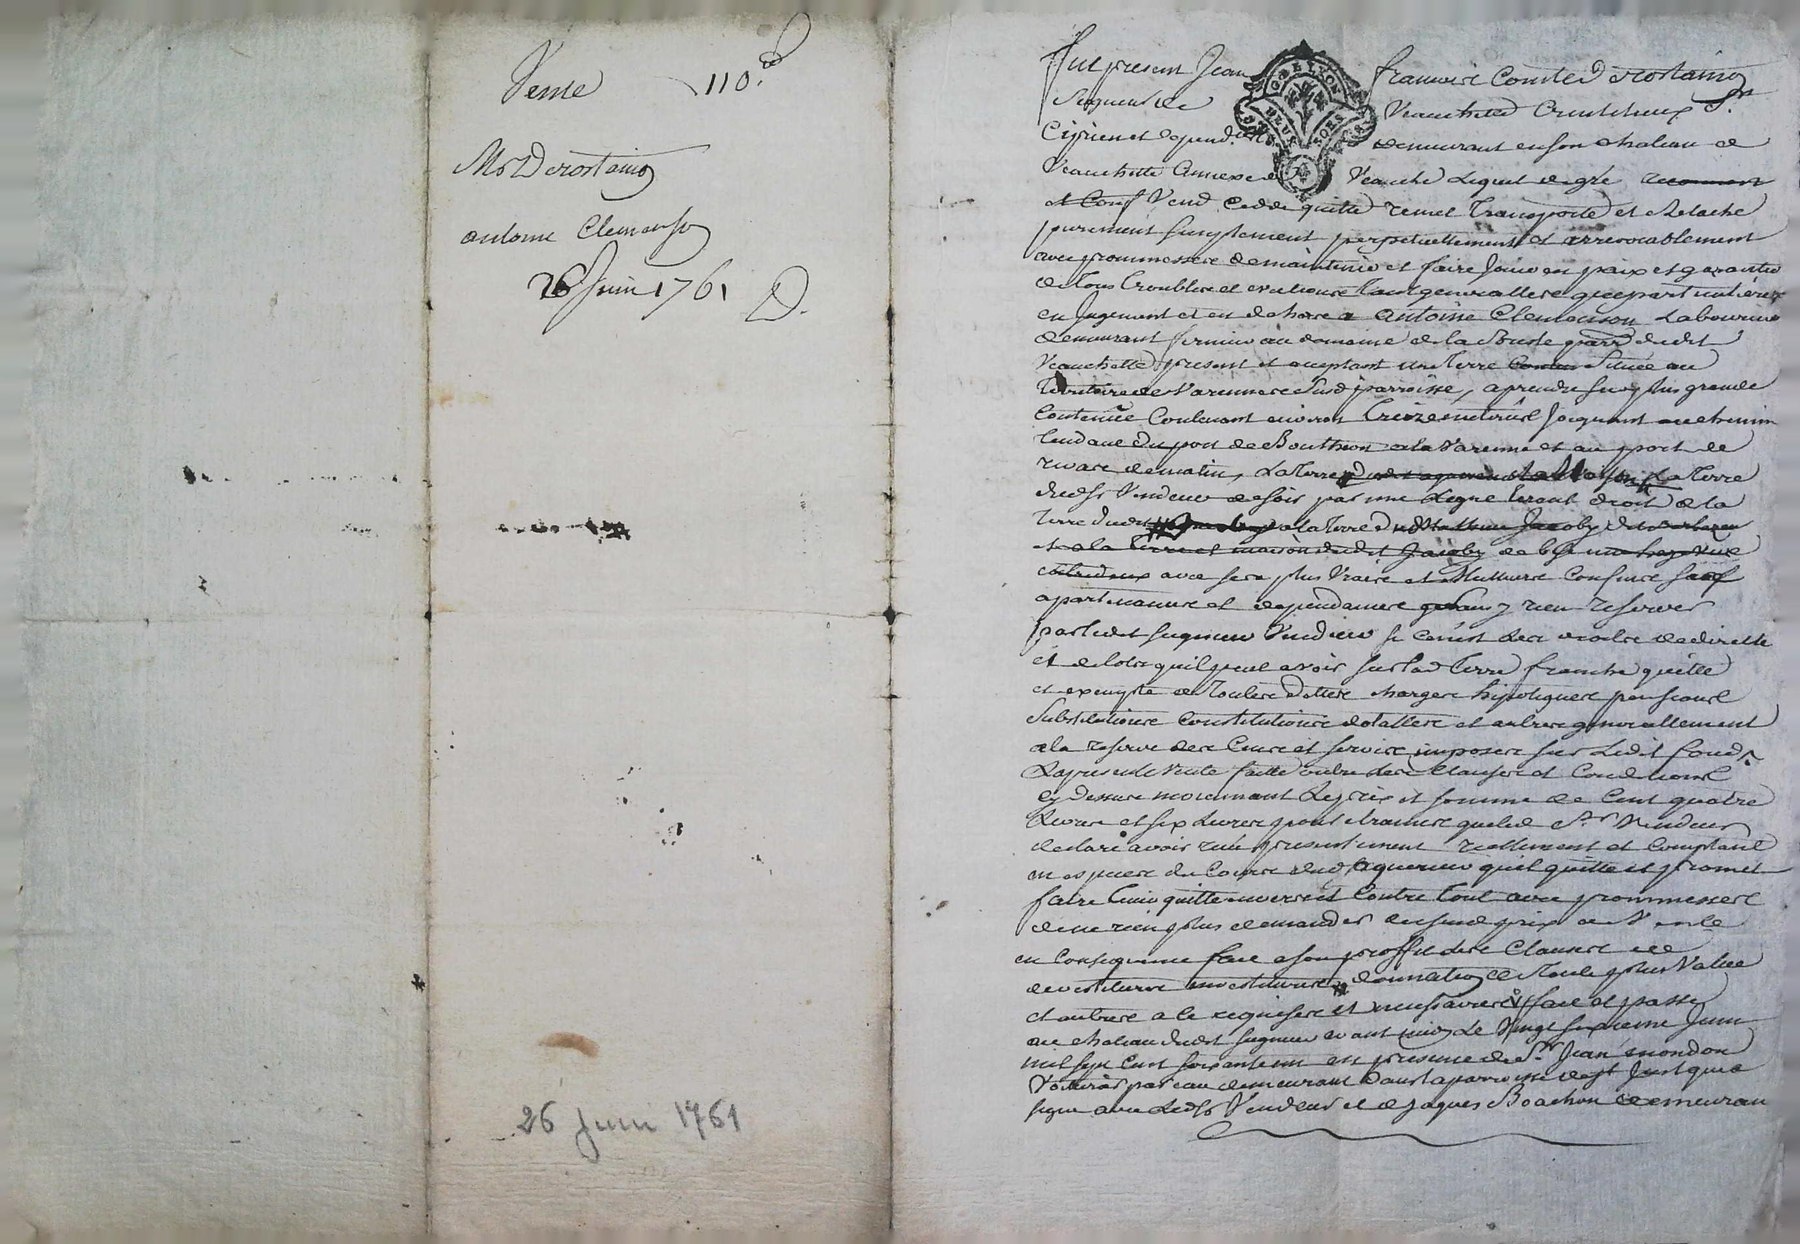 Vente 110.#
Mr Derostaing
antoine Clemenson
26 Juin 1761 D.
26 Juin 1761
G. DE LYON
DEUX SOLS
Fut present Jean francoise Comte de rostaing
Seigneur de Veauchette St.
Ciprien et depend.ces demeurant en son chateau de
Veauchette annexe de Veauche Lequel de gré
et Conf Vend cedde quitte remet Transporte et Relache
purement simplement perpetuellement et irrevocablement
avec prommesse de maintenir et faire Jouir en paix et garantir
de Tous Troubles et evictions tant generalles que particulieres
en Jugement et en dehors a antoine Clemenson Laboureur
demeurant fermier au domaine de la parr dudit
Veauchette present et acceptant une Terre Située au
Territoire de Varennes Susd parroisse, a prendre sa plus grande
Contenue Contenant environ Treize Joignant au chemin
tendant du port de Bouthéon a la Varenne et au port de
rivas de matin, La Terre La Terre
dudit Vendeur de soir par une Ligne tirant droit de la
Terre dudit a la Terre Jacob
et a la Terre et maison dudit de bize
avec ses plus Vrais et Meilleurs Confins sauf
apartenances et dependances sans y rien reserver
par ledit seigneur Vendeur si cen'est de directe
et de lots quil peut avoir sur lad Terre franche quitte
et exempte de Toutes dettes charges hipoteques pensions
Substitutions Constitutions dotalles et autres generallement
a la reserve des Cens et service imposes sur Ledit fond.
La presente Vente faitte outre les Clauses et Conditions
cy Dessus moienant Le prix et somme de Cent quatre
Livres et six Livres pour etraines que led Sr Vendeur
declare avoir reçu presentement reellement et Comptant
en especes du Cours dud aquereur quil quitte et promet
faire Tenir quitte envers et Contre tout avec prommesse
de ne rien plus demander dususd prix de Vente
en Consequence fait a son proffit des Clauses de
devestiture investiture donnation de Toute plus Value
et autres a ce requises et necessaires fait et passé
au chateau dudit seigneur avant midy Le Vingt sixieme Juin
mil sept cent soixante un en presence de Sr Jean mondon
Voiturier par eau demeurant dans la parroisse de St Just qui a
signe avec Ledit Vendeur et de Jaques Boachon demeurant